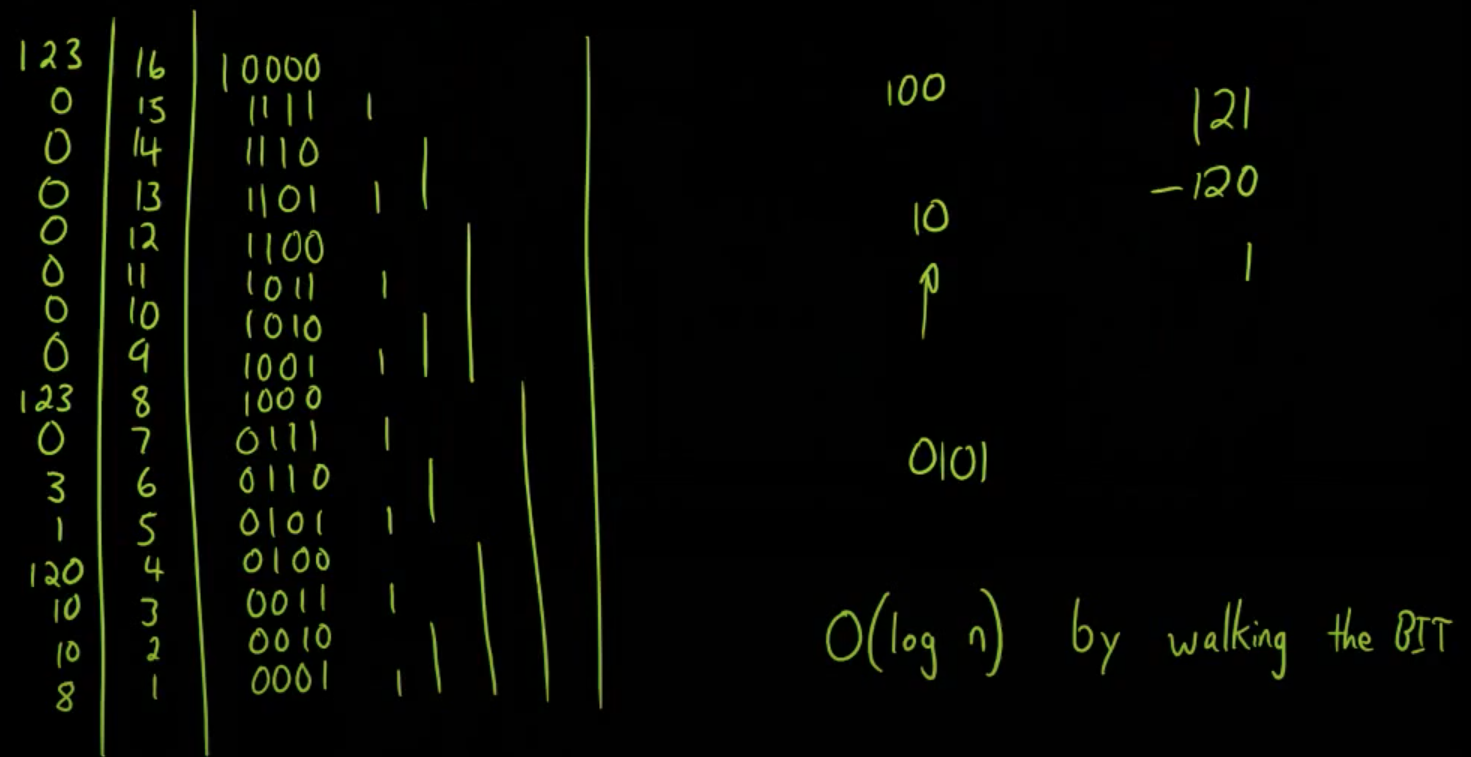 123 16 10000
0 15 1111
0 14 1110
0 13 1101
0 12 1100
0 11 1011
0 10 1010
0 9 1001
123 8 1000
0 7 0111
3 6 0110
1 5 0101
120 4 0100
10 3 0011
10 2 0010
8 1 0001
100
10
0101
121
-120
1
O(log n) by walking the BIT